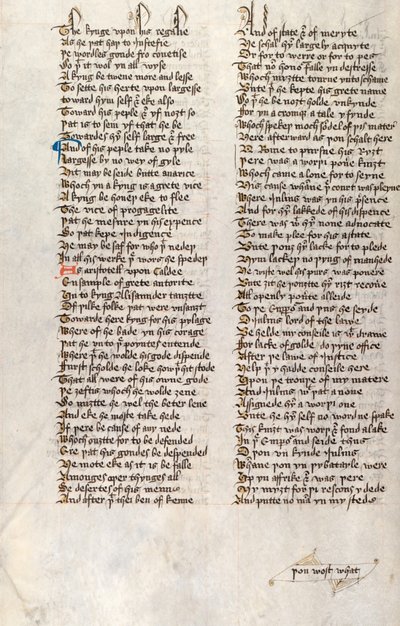 The kynge vpon his regalie
As he þat haþ to Justefie
þe worldes gonde fro couetise
So þt it wol yn all wyse
A kyng be twene more and lesse
To sette his herte vpon largesse
toward hym self & eke also
Toward his peple & yf nozt so
Þat is to seyn yf that he be
Towardes hy self large & free
And of his peple take no pyle
Largesse by no wey of gyle
Hit may be seide bitte auarice
Whoch yn a kyng is a grete vice
A kyng be houeþ eke to flee
The vice of prodagelite
Þat he mesure yn his expence
So þat kepe Indigence
He may be saf for who þt nedeþ
In all his werke þe wors he spedeþ
As aristotell vpon Caldee
Ensample of grete autorite
Vn to kyng Allisaunder tauzte
Of þilke folke þat were vnsauzt
Towarde here kyng for his pylage
Where of he bade yn his corage
Þat he vn to þre poyntes entende
Where þt he wolde his gode dispende
Furst scholde he loke how þt hit stode
That all were of his owne gode
Þe zeftis whoch he wolde zeue
So myzte he wel the beter leue
And eke he moste take hede
If þere be cause of any nede
Whoch ouzte for to be defended
Er þat his gondes be despended
He mote eke as it is be falle
Amonges oþer thynges all
Se desertes of his menne
And after þt thei ben of kenne
And of state & of meryte
He schal hy largely acquyte
Or for to werre or for to pes
That no honor falle yn destresse
Whoch myzte tourne vn to schame
Bute þt he kepte his grete name
So þt he be nozt holde vnkynde
For yn a cronyq a tale y fynde
Whoch spekeþ moch sodel of þys mater
Here afterward as þou schalt here
In Rome to pursue his ryzt
Þere was a worþi poure knizt
Whoch came a lone for to seyne
His cause whane þe court was pleyne
Where Julius was yn his presence
And for hy lakkede of his dispence
There was wt hy none aduocate
To make plee for his astate
Bute þouz hy lacke for to plede
Hym lackeþ no þyng of manhede
He wiste wel his purs was pouere
Bute zit he þouzte his rizt recoue
All openly pouerte alleide
To þe Emperor and þus he seyde
O Julius lord of the lawe
Be helde my conseile is wt drawe
For lacke of golde do þyne office
After þe lawe of Justice
Help þt y hadde conseile here
Vpon þe trouþe of my matere
And Julius wt þat a noone
Assignede hy a worþi one
Bute he hy self no word ne spake
This knizt was worþ & fond a lake
In þe Emperor and seide thus
O þou vn kynde Julius
Whane þou yn þy batayle were
Vp yn affrike & was þere
My myzt for þi rescous y dede
And putte no man yn my stede
þou wost what